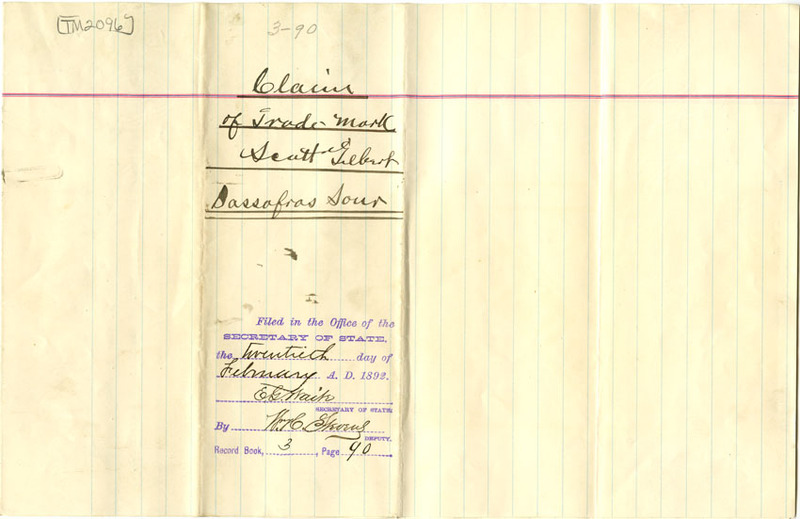 TM2096
3-90
Claim
of Trade-Mark
Scott and Gilbert
Sassafras Sour
Filed in the Office of the
SECRETARY OF STATE,
the twentieth day of
February A. D. 1892.
E G Waite
SECRETARY OF STATE
By W. H.
DEPUTY.
Record Book, 3, Page 90